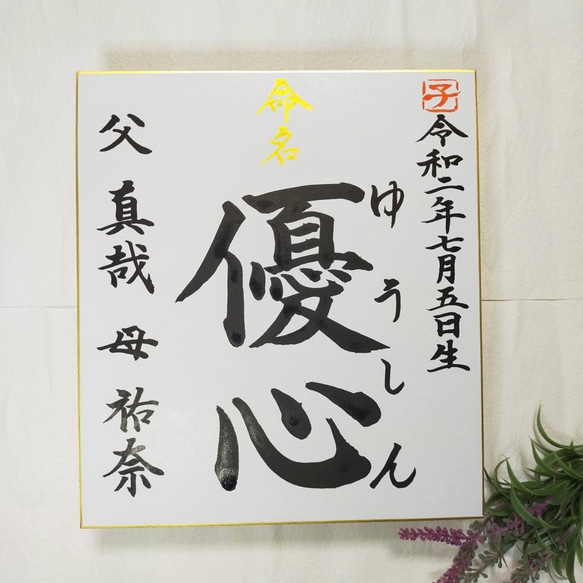 子
令和二年七月五日生
命名
優心
ゆうしん
父 真哉 母 祐奈